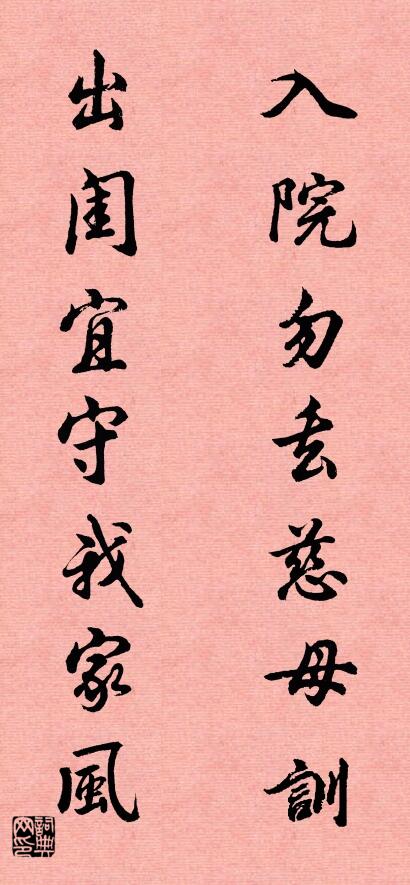 入院勿丢慈母訓
出閨宜守我家風
詞典网印